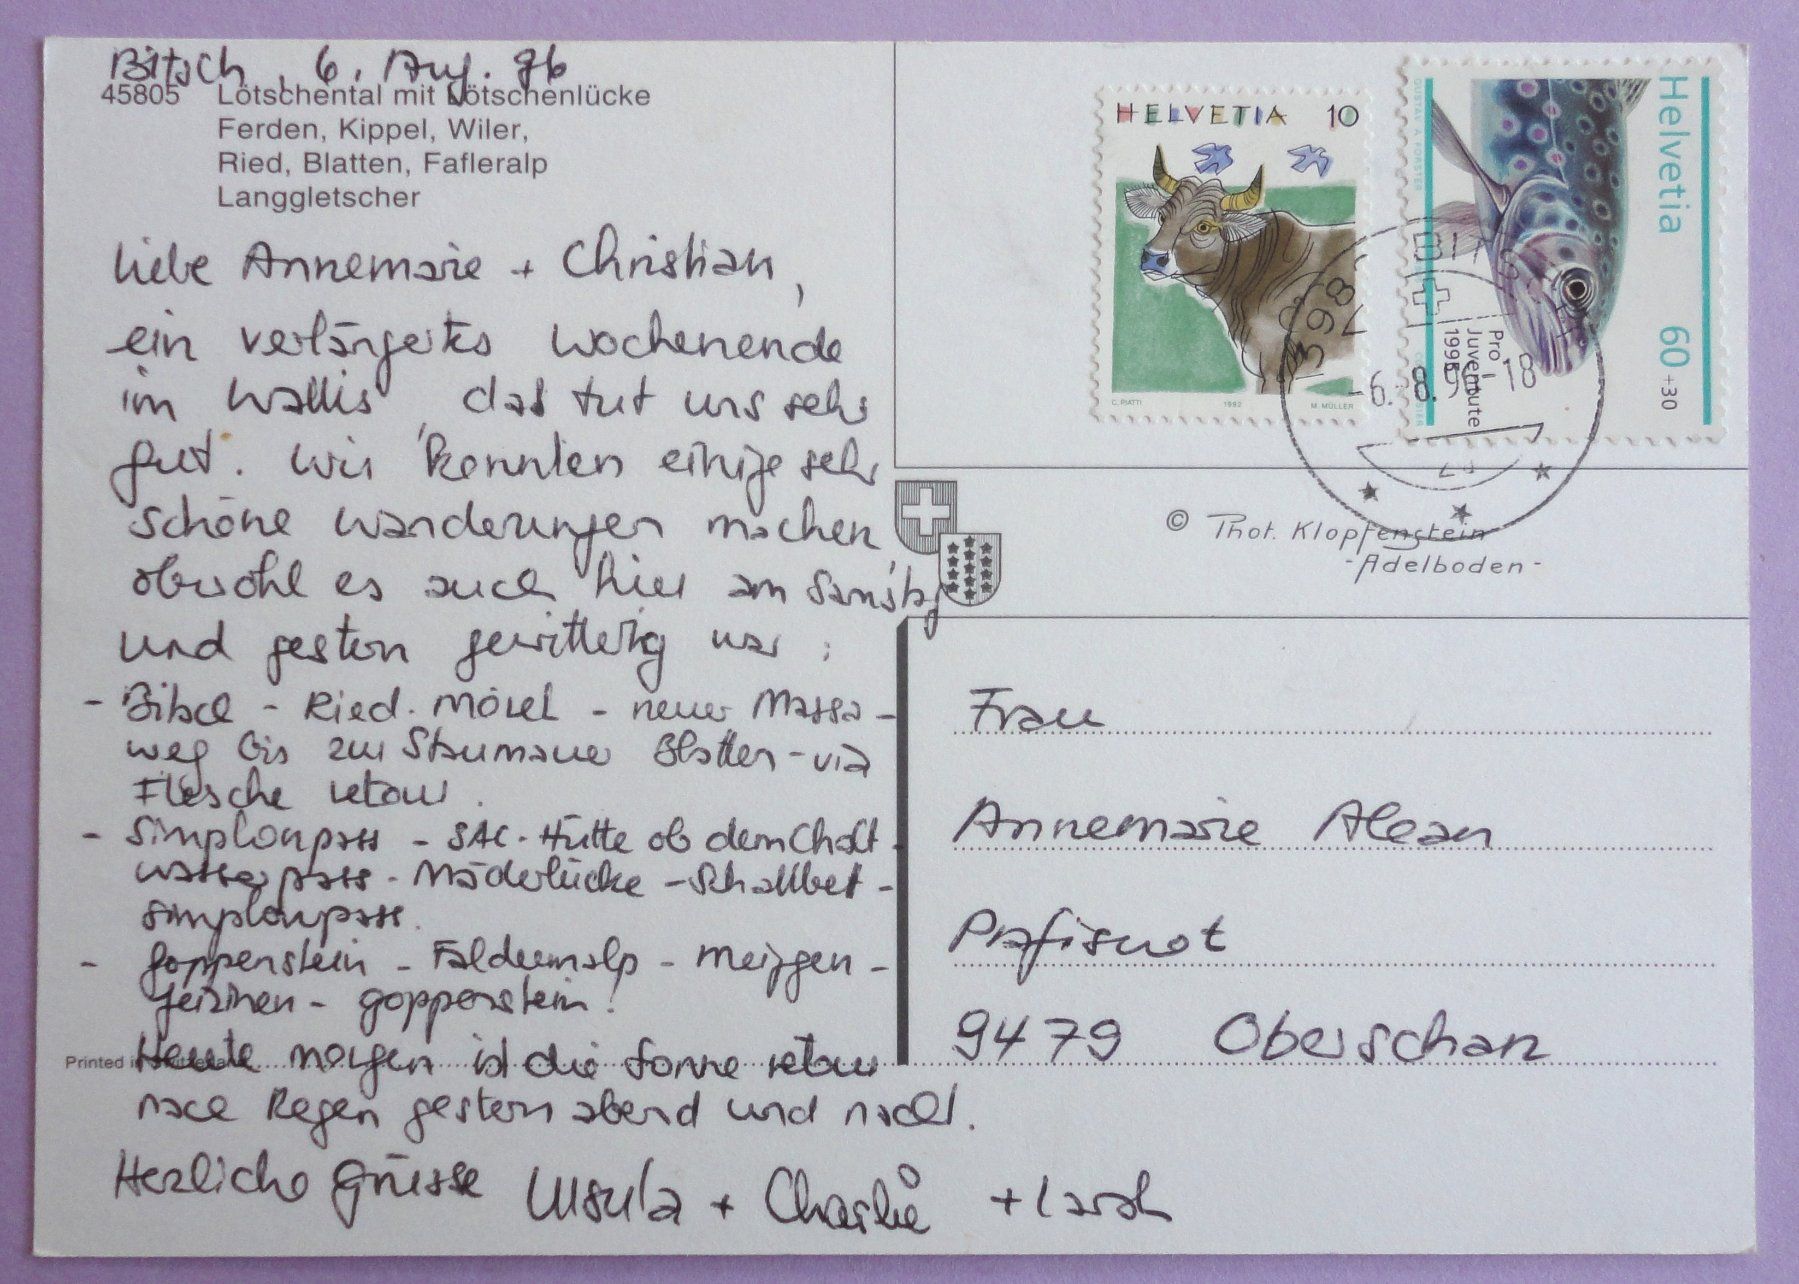 Bitsch, 6. Aug. 96
45805 Lötschental mit Lötschenlücke
Ferden, Kippel, Wiler,
Ried, Blatten, Fafleralp
Langgletscher
Liebe Annemarie + Christian,
ein verlängertes Wochenende
im Wallis, das tut uns sehr
gut. Wir konnten einige sehr
schöne Wanderungen machen,
obwohl es auch hier am Samstag
und gestern gewitterig war:
- Bitsch - Ried-Mörel - neuer Massa-
weg bis zur Staumauer Blatten - via
Flesche retour.
- Simplonpass - SAC-Hütte ob dem Chalt-
wasserpass - Mäderlücke - Schallbet -
Simplonpass.
- Goppenstein - Faldumalp - Meiggen -
Jeizinen - Goppenstein!
Heute morgen ist die Sonne retour
nach Regen gestern abend und nacht.
Herzliche Grüsse Ursula + Charlie + Larah
Printed in Switzerland
HELVETIA 10
C. PIATTI 1992 M. MÜLLER
Helvetia 60+30
Pro
Juventute
1995
GUSTAV A. FORSTER
3982 BITSCH
-6.8.
18
© Phot. Klopfenstein
-Adelboden-
Frau
Annemarie Alean
Prafisuot
9479 Oberschan